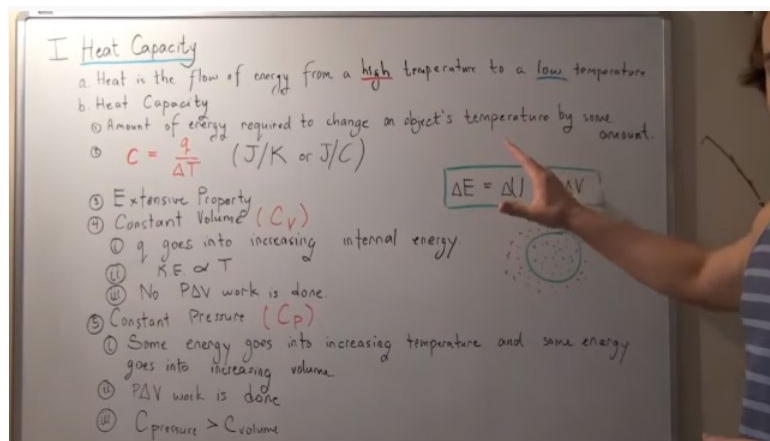 I Heat Capacity
a. Heat is the flow of energy from a high temperature to a low temperature
b. Heat Capacity
① Amount of energy required to change an object's temperature by some
amount.
② C = q/ΔT (J/K or J/C)
③ Extensive Property
④ Constant Volume (Cv)
ⓘ q goes into increasing internal energy.
ⓘⓘ K.E. α T
ⓘⓘⓘ No PΔV work is done.
⑤ Constant Pressure (Cp)
ⓘ Some energy goes into increasing temperature and some energy
goes into increasing volume
ⓘⓘ PΔV work is done
ⓘⓘⓘ Cpressure > Cvolume
ΔE = ΔU ΔV